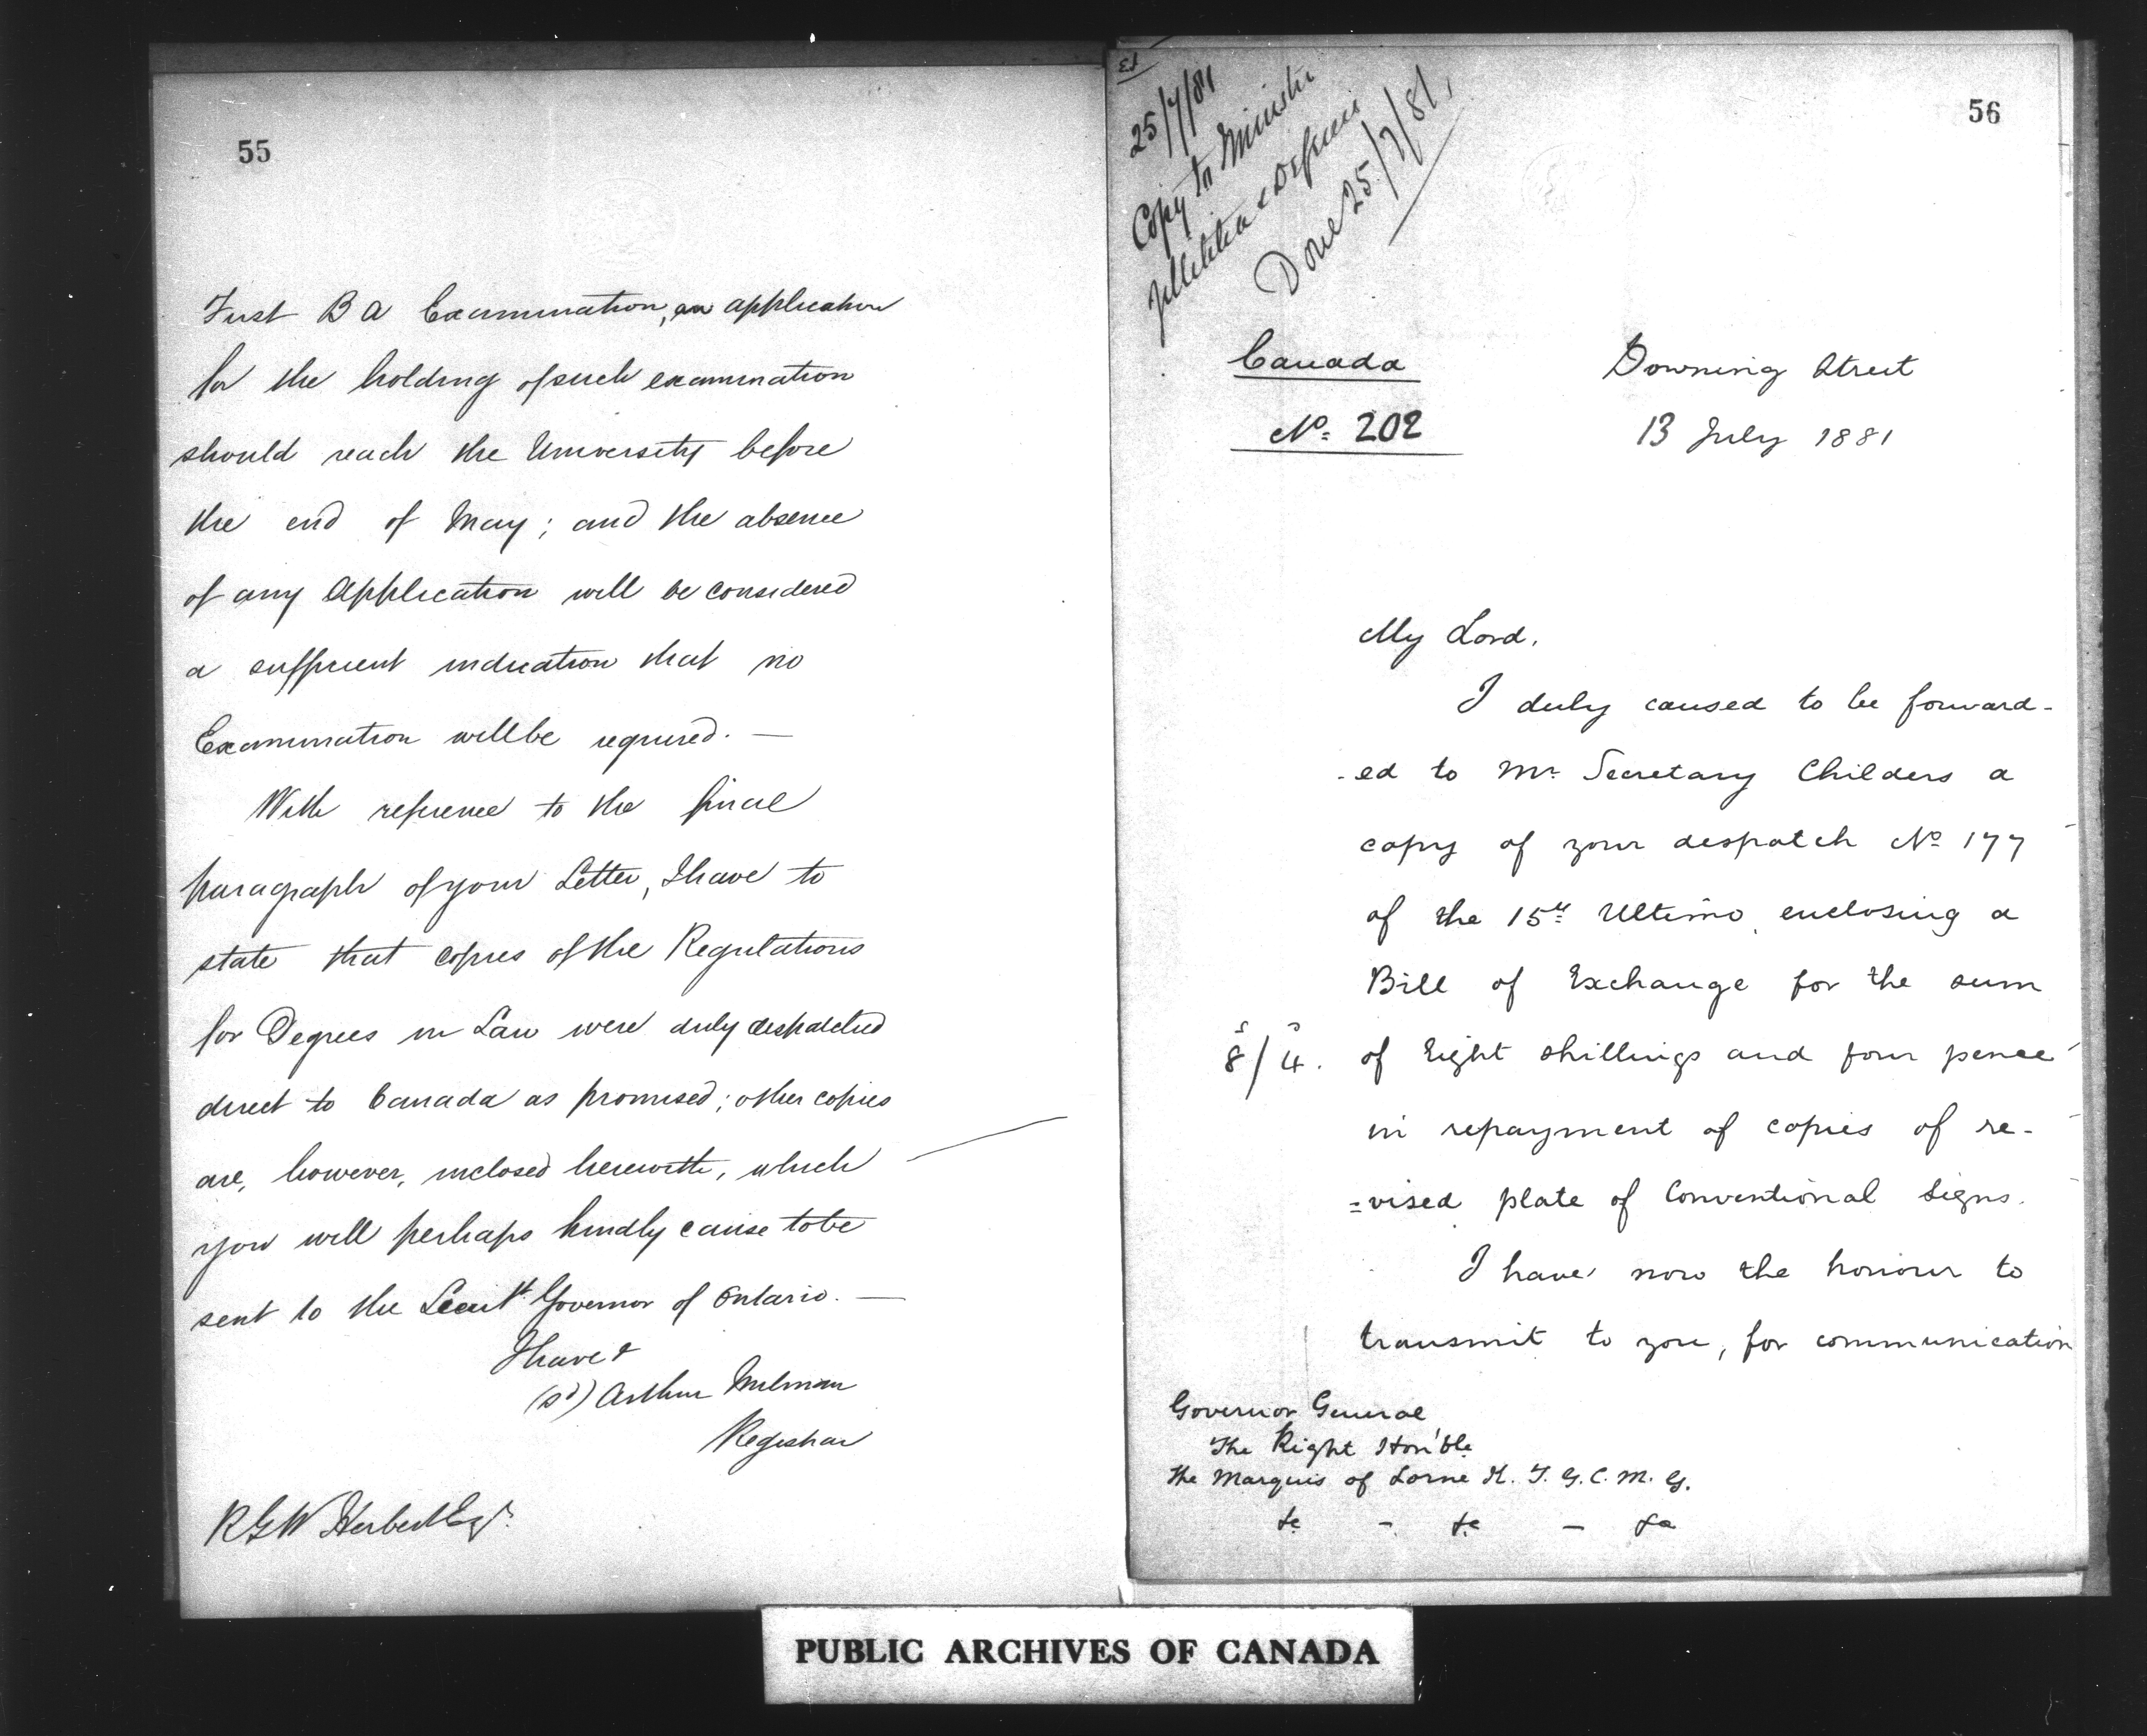 55
First B A Examination, an application
for the holding of such examination
should reach the University before
the end of May; and the absence
of any Application will be considered
a sufficient indication that no
Examination will be required. —
With reference to the final
paragraph of your Letter, I have to
state that copies of the Regulations
for Degrees in Law were duly despatched
direct to Canada as promised; other copies
are, however, inclosed herewith, which
you will perhaps kindly cause to be
sent to the Lieut Governor of Ontario. —
I have &
(sd) Arthur Milman
Registrar
R G W Herbert Esqr.
56
25/7/81
Copy to Minister
Militia & Defence
Done 25/7/81.
Canada
No. 202
Downing Street
13 July 1881
My Lord,
I duly caused to be forward-
-ed to Mr. Secretary Childers a
copy of your despatch No 177
of the 15th Ultimo, enclosing a
Bill of Exchange for the sum
8s/4d. of Eight shillings and four pence
in repayment of copies of re-
=vised plate of Conventional Signs.
I have now the honour to
transmit to you, for communication
Governor General
The Right Hon'ble
The Marquis of Lorne K. T. G. C. M. G.
&c - &c - &c
PUBLIC ARCHIVES OF CANADA